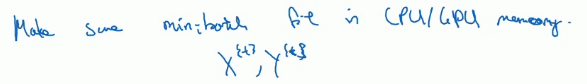 Make sure minibatch fit in CPU/GPU memory.
X^{t}, Y^{t}